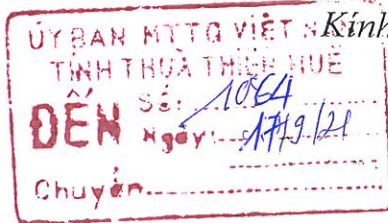 ỦY BAN MTTQ VIỆT N Kính
TỈNH THỪA THIÊN HUẾ
ĐẾN Số: 1064
Ngày: 17/9/21
Chuyển